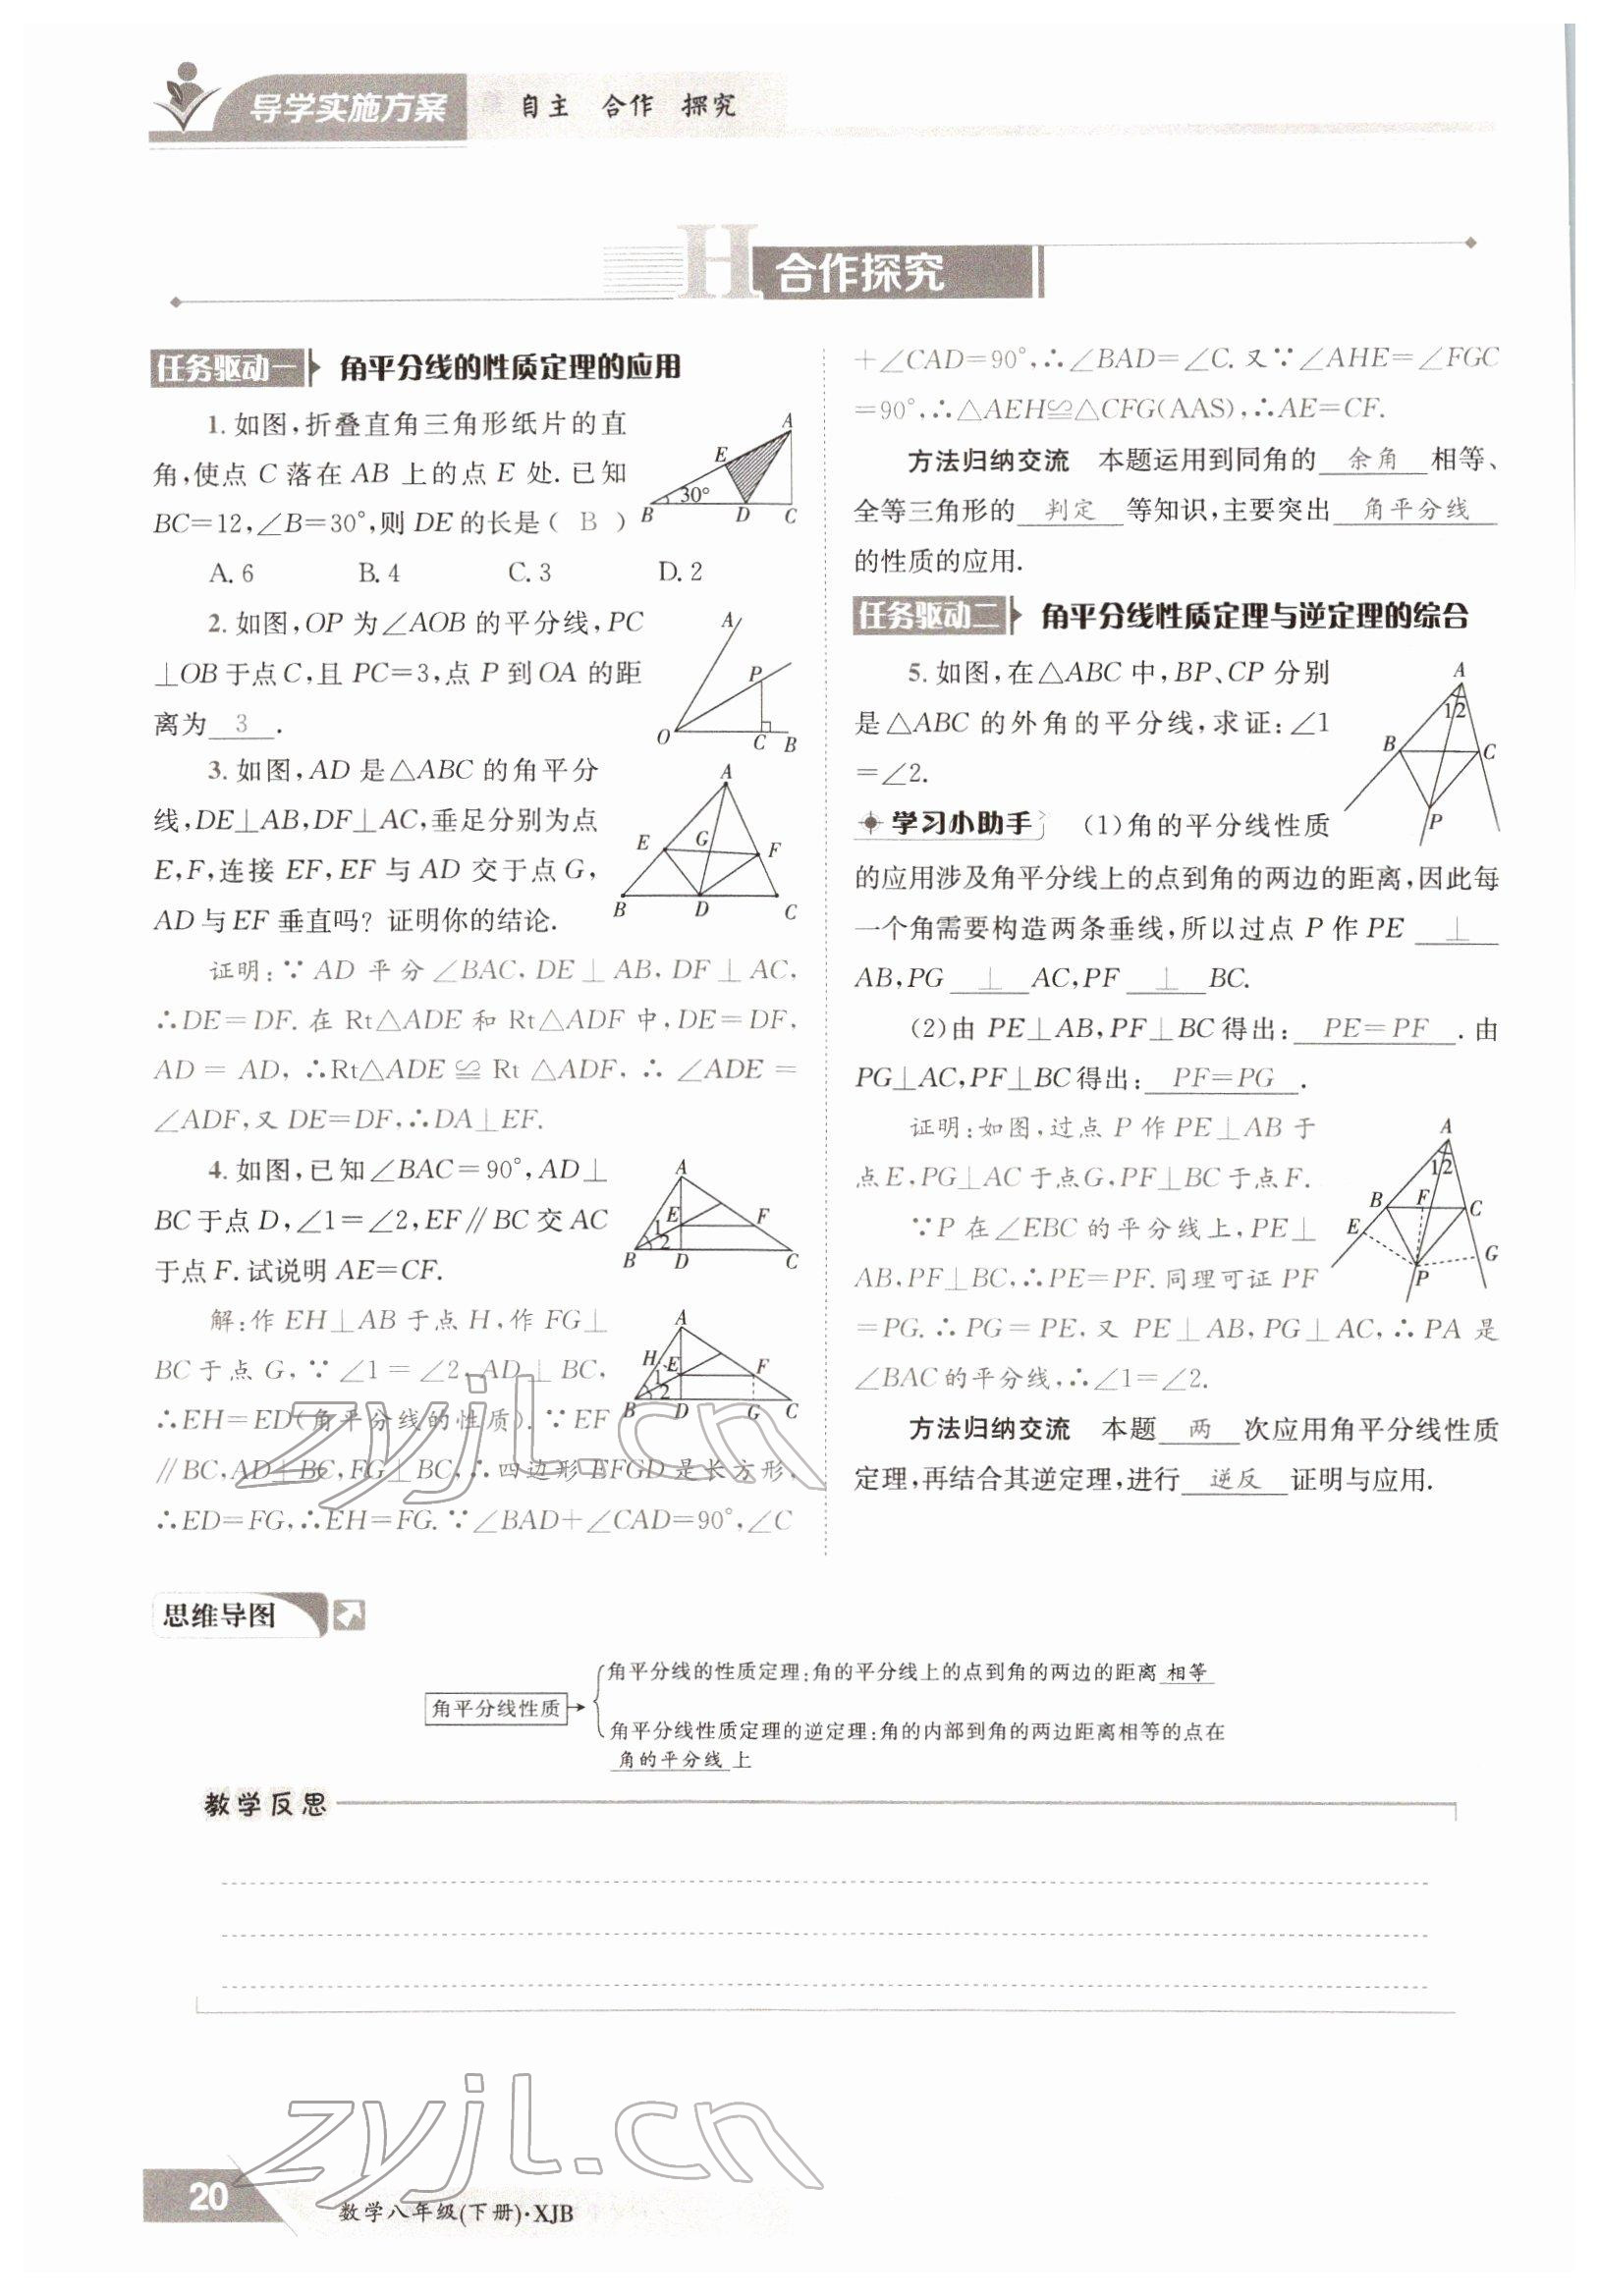 导学实施方案 自主 合作 探究
H 合作探究
任务驱动一 角平分线的性质定理的应用
1. 如图,折叠直角三角形纸片的直
角,使点 C 落在 AB 上的点 E 处. 已知
BC=12,∠B=30°,则 DE 的长是( B )
A. 6 B. 4 C. 3 D. 2
A
E
30°
B D C
2. 如图,OP 为∠AOB 的平分线,PC
⊥OB 于点 C,且 PC=3,点 P 到 OA 的距
离为 3 .
A
P
O C B
3. 如图,AD 是△ABC 的角平分
线,DE⊥AB,DF⊥AC,垂足分别为点
E,F,连接 EF,EF 与 AD 交于点 G,
AD 与 EF 垂直吗? 证明你的结论.
A
E G F
B D C
证明:∵ AD 平分∠BAC, DE⊥AB, DF⊥AC,
∴DE=DF. 在 Rt△ADE 和 Rt△ADF 中,DE=DF,
AD = AD, ∴Rt△ADE ≌ Rt △ADF, ∴ ∠ADE =
∠ADF,又 DE=DF,∴DA⊥EF.
4. 如图,已知∠BAC=90°,AD⊥
BC 于点 D,∠1=∠2,EF∥BC 交 AC
于点 F. 试说明 AE=CF.
A
1 E F
2
B D C
解:作 EH⊥AB 于点 H,作 FG⊥
BC 于点 G, ∵ ∠1=∠2, AD⊥BC,
∴EH=ED(角平分线的性质). ∵ EF
∥BC,AD⊥BC,FG⊥BC,∴四边形 EFGD 是长方形,
∴ED=FG,∴EH=FG. ∵∠BAD+∠CAD=90°,∠C
A
H 1 E F
2
B D G C
+∠CAD=90°,∴∠BAD=∠C. 又∵∠AHE=∠FGC
=90°,∴△AEH≌△CFG(AAS),∴AE=CF.
方法归纳交流 本题运用到同角的 余角 相等、
全等三角形的 判定 等知识,主要突出 角平分线
的性质的应用.
任务驱动二 角平分线性质定理与逆定理的综合
5. 如图,在△ABC 中,BP、CP 分别
是△ABC 的外角的平分线,求证:∠1
=∠2.
A
1 2
B C
P
学习小助手 (1)角的平分线性质
的应用涉及角平分线上的点到角的两边的距离,因此每
一个角需要构造两条垂线,所以过点 P 作 PE ⊥
AB,PG ⊥ AC,PF ⊥ BC.
(2)由 PE⊥AB,PF⊥BC 得出: PE=PF . 由
PG⊥AC,PF⊥BC 得出: PF=PG .
证明:如图,过点 P 作 PE⊥AB 于
点 E,PG⊥AC 于点 G,PF⊥BC 于点 F.
∵P 在∠EBC 的平分线上,PE⊥
AB,PF⊥BC,∴PE=PF. 同理可证 PF
=PG. ∴ PG=PE, 又 PE⊥AB, PG⊥AC, ∴ PA 是
∠BAC 的平分线,∴∠1=∠2.
A
1 2
B F C
E G
P
方法归纳交流 本题 两 次应用角平分线性质
定理,再结合其逆定理,进行 逆反 证明与应用.
思维导图
角平分线性质
角平分线的性质定理:角的平分线上的点到角的两边的距离 相等
角平分线性质定理的逆定理:角的内部到角的两边距离相等的点在
角的平分线 上
教学反思
zyjl.cn
zyjl.cn
20
数学八年级(下册)·XJB